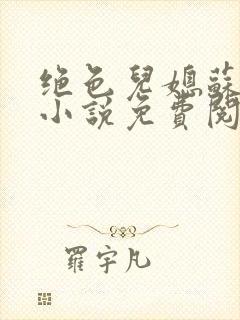 绝色兒媳蘇
小説免費閱
羅宇凡